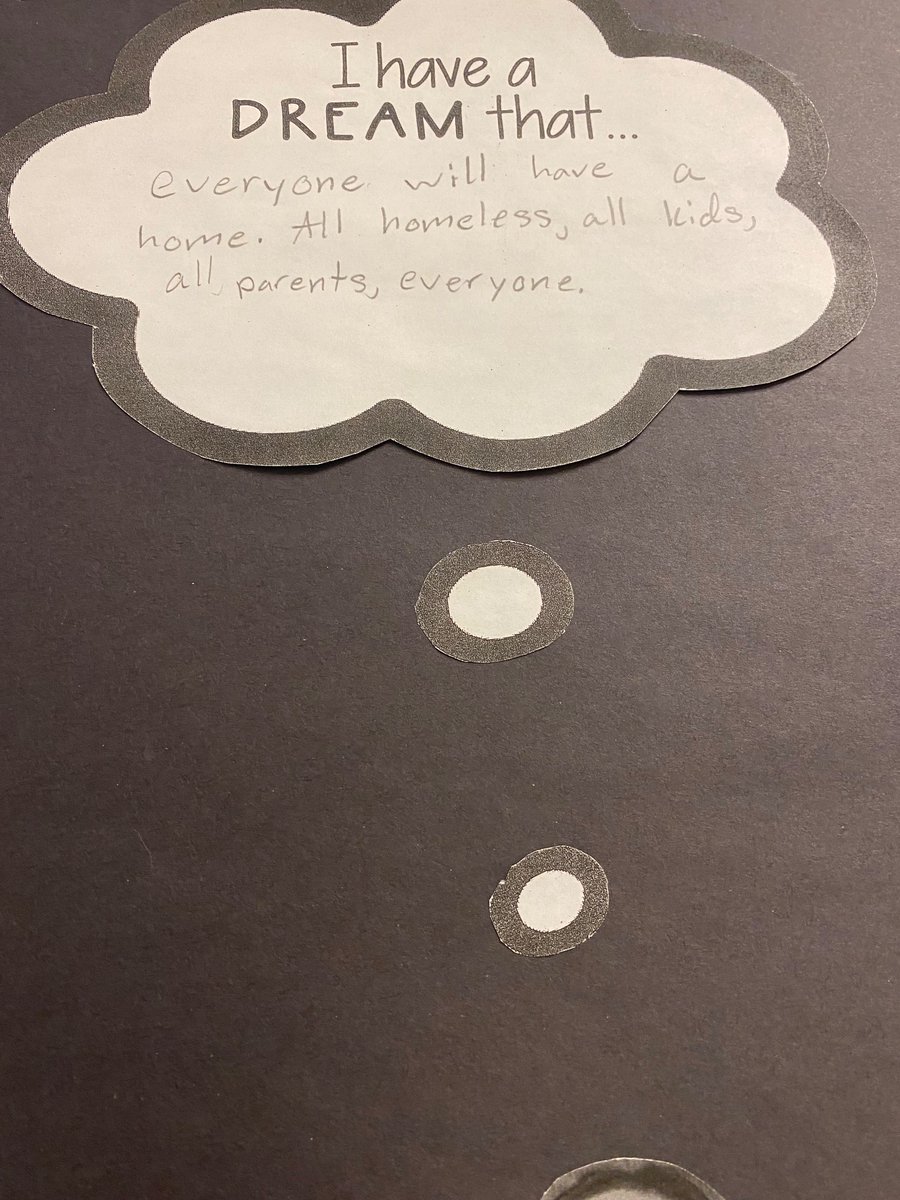 I have a
DREAM that...
everyone will have a
home. All homeless, all kids,
all parents, everyone.